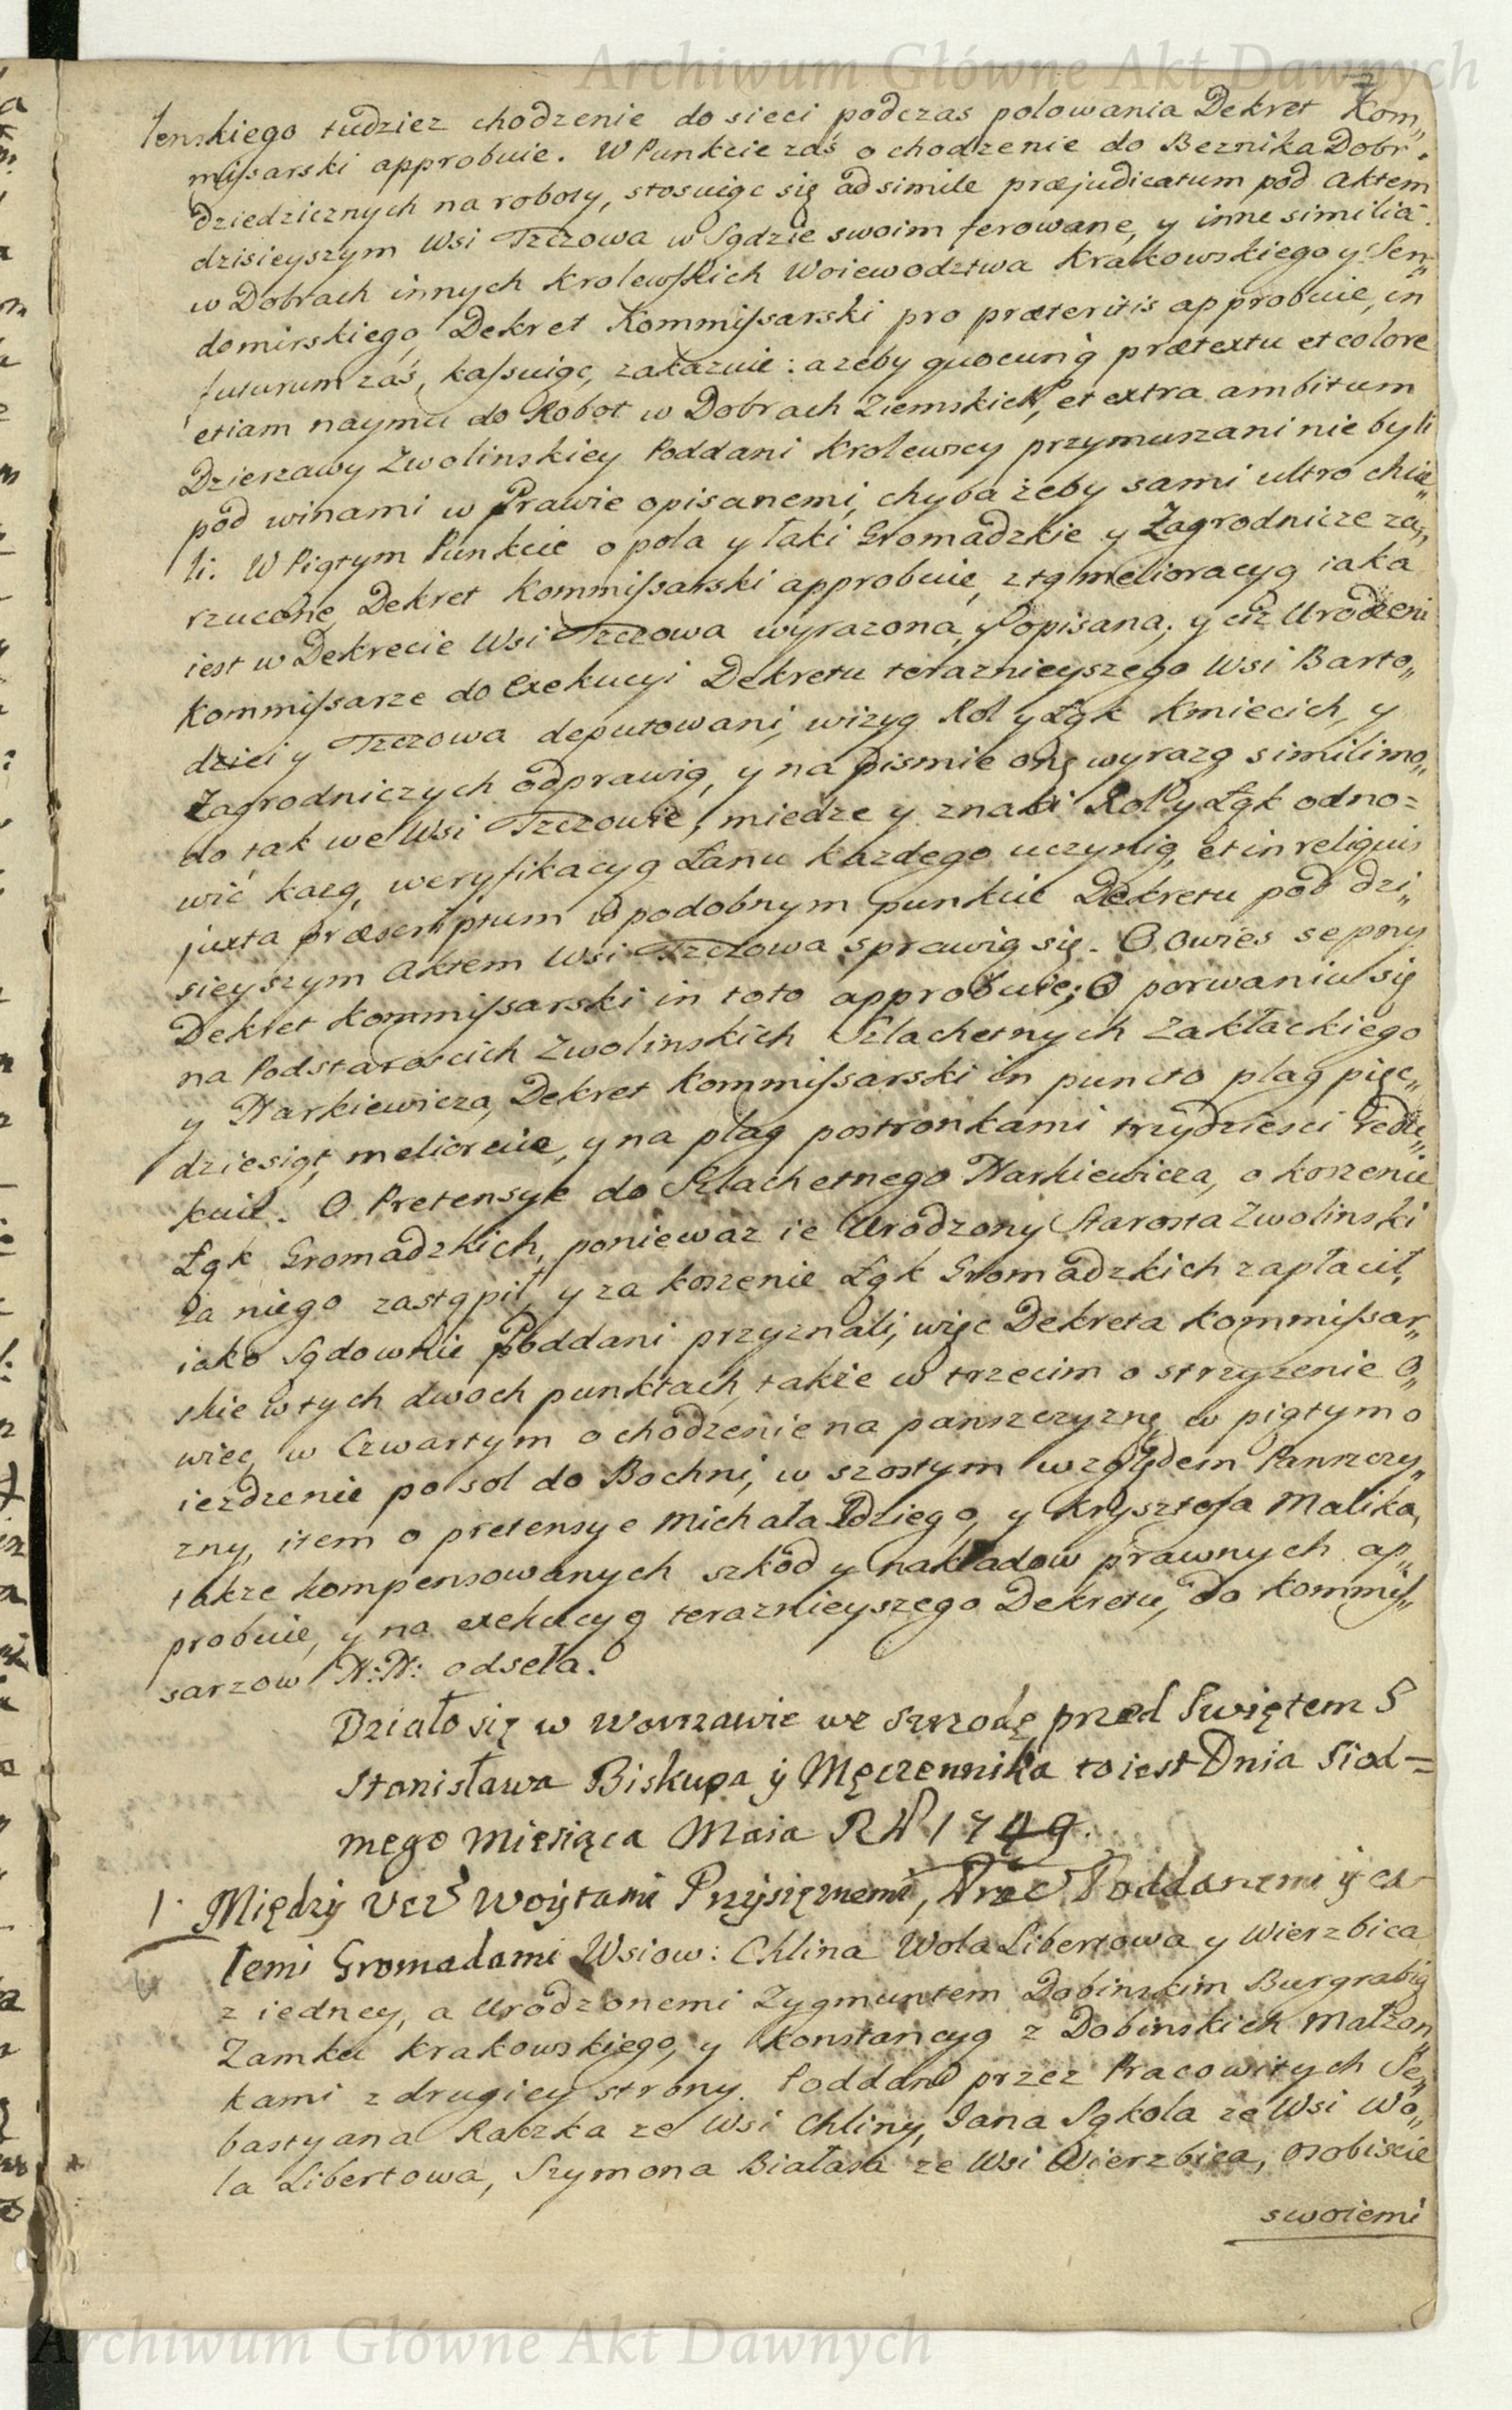 Archiwum Główne Akt Dawnych
tenskiego tudziez chodzenie do sieci podczas polowania Dekret Kom„
missarski approbuie. W Punkcie zaś o chodzenie do Beznika Dobr
dziedzicznych na roboty, stosuiąc się ad simile præjudicatum pod aktem
dzisieyszym Wsi Tczowa w Sądzie swoim ferowane, y inne similia
w Dobrach innych Krolewskich Woiewodztwa Krakowskiego y Sen„
domirskiego Dekret Kommissarski pro præteritis approbuie, in
futurum zaś, kassuiąc, zakazuie: azeby quocunq prætextu et colore
etiam naymu do Robot w Dobrach Ziemskich, et extra ambitum
Dzierzawy Zwolinskiey Poddani Krolewscy przymuszani nie byli
pod winami w Prawie opisanemi, chyba żeby sami ultro chcie„
li. W Piątym Punkcie o pola y łaki Gromadzkie y Zagrodnicze za„
rzucone, Dekret Kommissarski approbuie, z tą melioracyą iaka
iest w Dekrecie Wsi Tczowa wyrazona, y opisana, y ciż Urodzeni
Kommissarze do Exekucyi Dekretu teraznieyszego Wsi Barto„
dziei y Tczowa deputowani, wizyą Rol y Łąk Kmiecich, y
Zagrodniczych odprawią, y na pismie onę wyrazą simili mo„
do tak we Wsi Tczowie, miedze y znaki Rol y Łąk odno=
wić kazą, weryfikacyą Łanu kazdego uczynią, et in reliquis
juxta præscriptum w podobnym punkcie Dekretu pod dzi„
sieyszym Aktem Wsi Tczowa sprawią się. O Owies sepny
Dekret Kommissarski in toto approbuie; O porwaniu się
na Podstaroscich Zwolinskich Szlachetnych Zakłackiego
y Narkiewicza, Dekret Kommissarski in puncto plag pięc„
dziesiąt, melioruie, y na plag postronkami trzydziesci redu„
kuie. O Pretensye do Szlachetnego Narkiewicza, o koszenie
Łąk Gromadzkich, poniewaz ie Urodzony Starosta Zwolinski
za niego zastąpił y za koszenie Łąk Gromadzkich zapłacił,
iako Sądownie Poddani przyznali, więc Dekreta Kommissar„
skie w tych dwoch punktach, takze w trzecim o strzyzenie O„
wiec, w Czwartym o chodzenie na panszczyznę, w piątym o
iezdzenie po sol do Bochni, w szostym względem Panszczy„
zny, item o pretensye Michała Idziego, y Krysztofa Malika,
takze kompensowanych szkod y nakładow prawnych ap„
probuie, y na exekucyą teraznieyszego Dekretu, do Kommis„
sarzow N: N: odseła.
Działo się w Warszawie we Szrodę przed Swiętem S
Stanisława Biskupa ÿ Męczennika to iest Dnia Siod=
mego Miesiąca Maia RP 1749.
1. Między Ucz Woÿtami Przysięznemi, Prac Poddanemi ÿ ca-
łemi Gromadami Wsiow: Chlina Wola Libertowa y Wierzbica
z iedney, a Urodzonemi Zygmuntem Dobinskim Burgrabią
Zamku Krakowskiego, y Konstancyą z Dobinskich Małżon„
kami z drugiey strony. Poddani przez Pracowitych Se„
bastyana Raczka ze Wsi Chliny, Jana Sąkola ze Wsi Wo„
la Libertowa, Szymona Białasa ze Wsi Wierzbica, osobiscie
swoiemi
Archiwum Główne Akt Dawnych